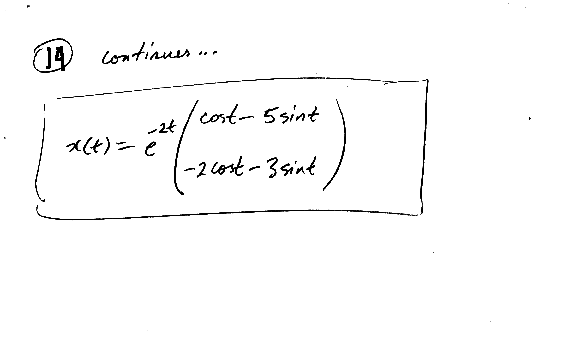 14 continues...
x(t) = e^{-2t} ( cost - 5 sint
-2 cost - 3 sint )